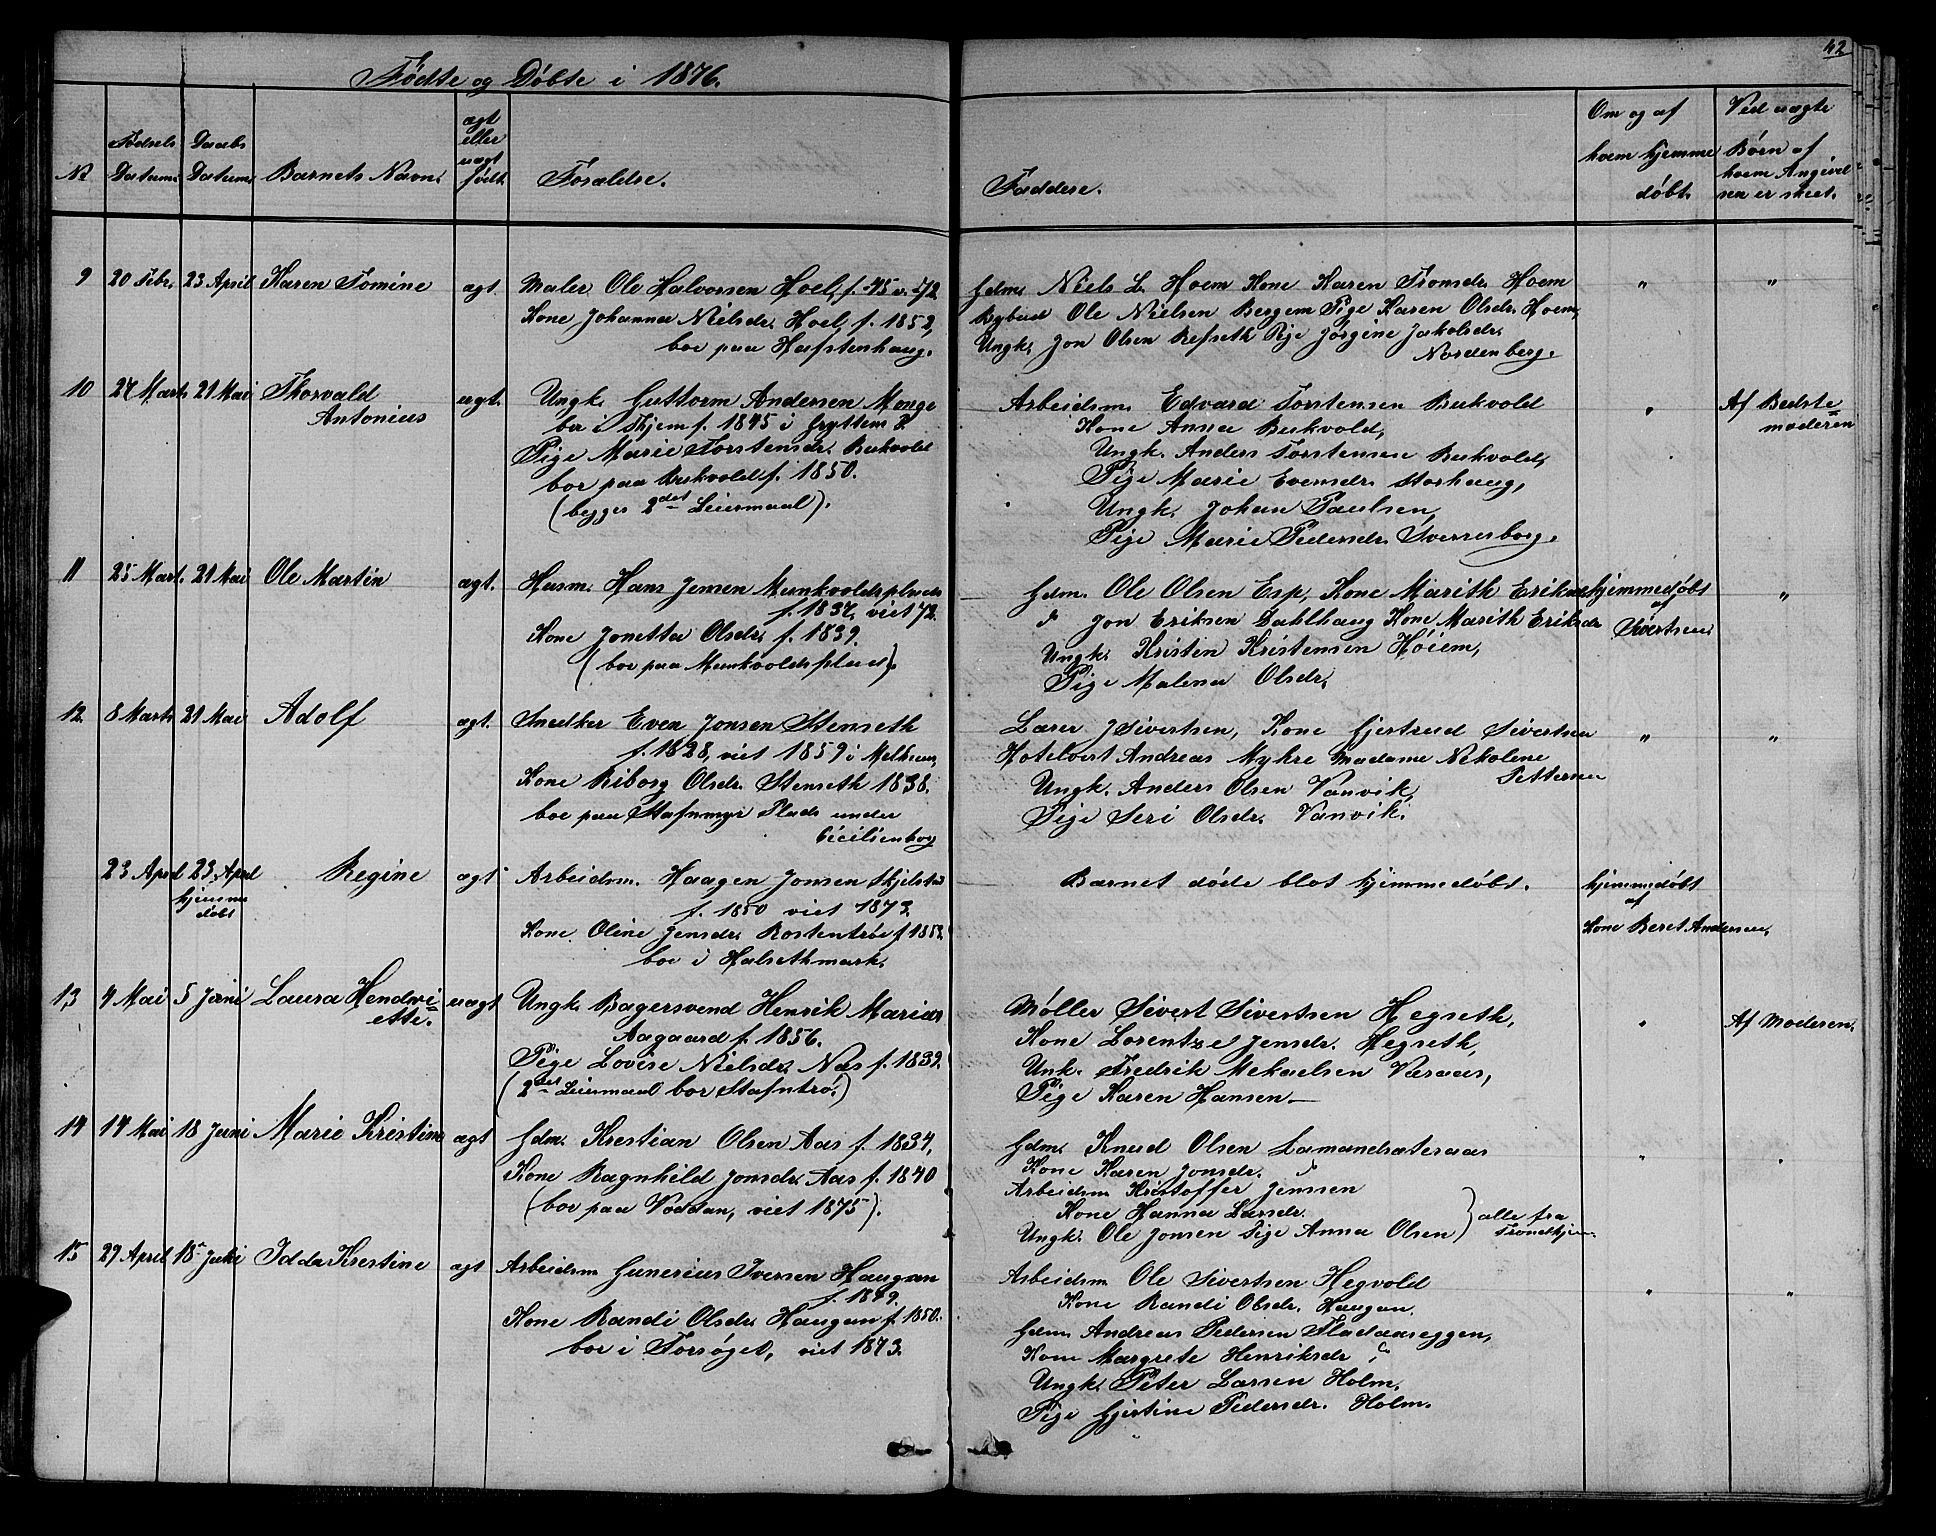 42
Fødte og Døbte i 1876.
No
Fødsels Datum
Daabs Datum
Barnets Navn.
ægt eller uægt født
Forældre.
Faddere.
Om og af hvem hjemme døbt.
Ved uægte Børn af hvem Angivel sen er skeet.
9 20 Febr. 23 April Karen Tomine ægt Maler Ole Halvorsen Hoel, f. 45 v. 72
Kone Johanna Nielsdr. Hoel, f. 1852,
bor paa Hafstenhaug.
Gdm. Niels L. Hoem Kone Karen Tromsdr. Hoem " "
Bybud Ole Nielsen Bergem Pige Karen Olsdr. Hoem,
Ungk. Jon Olsen Refseth Pige Jørgine Jakobsdr.
Nordenberg.
10 24 Marts 21 Mai Thorvald
Antonius
uegt. Ungk. Guttorm Andersen Monge
bor i Skjem f. 1845 i Gryttens P.
Pige Marie Torstensdr. Bukvold
bor paa Bukvold f. 1850.
(begges 2det Leiermaal).
Arbeidsm. Edvard Torstensen Bukvold " Af Bedste=
moderen
Kone Anna Bukvold,
Ungk. Anders Torstensen Bukvold,
Pige Marie Evensdr. Storhaug,
Ungk. Johan Paulsen,
Pige Marie Pedersdr. Sverresborg.
11 25 Mart. 21 Mai Ole Martin ægt. Husm. Hans Jensen Munkvoldsplads
f. 1837, viet 72.
Kone Jonetta Olsdr. f. 1839.
(bor paa Munkvoldsplads).
Gdm. Ole Olsen Esp, Kone Marith Eriksd. hjemmedøbt "
af
Sivertsen
d Jon Eriksen Dahlhaug Kone Marith Eriksdr
Ungk. Kristen Kristensen Høiem,
Pige Malena Olsdr.
12 8 Marts 21 Mai Adolf ægt. Snedker Even Jonsen Stenseth
f. 1828, viet 1859 i Melhuus,
Kone Riborg Olsdr. Stenseth 1838.
bor paa Stafnmyr Plads under
Cicilienborg
Lærer J Sivertsen, Kone Gjertrud Sivertsen " "
Hotelvert Andreas Myhre Madame Nikoline
Pettersen
Ungk. Anders Olsen Vanvik,
Pige Seri Olsdr. Vanvik.
23 April 23 April
hjemme
døbt
Regine ægt Arbeidsm. Haagen Jonsen Skjelstad
f. 1850 viet 1873.
Kone Oline Jensdr. Rostentrøe f. 1852
bor i Halsethmark.
Barnet døde blot hjemmedøbt. hjemmedøbt
af
Kone Beret Andersen.
13 4 Mai 5 Juni Laura Hendri=
ette.
uægt Ungk. Bagersvend Henrik Marius
Aagaard f. 1856.
Pige Lovise Nielsdr. Næs f. 1839.
(2det Leiermaal bor Stafntrø.)
Møller Sivert Sivertsen Hegseth, " Af Moderen.
Kone Lorentze Jensdr. Hegseth,
Unk. Fredrik Mekaelsen Væraas,
Pige Karen Hansen.
14 14 Mai 18 Juni Marie Kristine ægt Gdm. Krestian Olsen Aas f. 1834,
Kone Ragnhild Jonsdr. Aas f. 1840
(bor paa Voddan, viet 1875).
Gdm. Knud Olsen Lamandsæteraas " "
Kone Karen Jonsdr. d
Arbeidsm. Kristoffer Jenssen
Kone Hanna Larsdr.
Ungk. Ole Jonsen Pige Anna Olsen } alle fra
Trondhjem.
15 29 April 18 Juli Idda Krestine ægt Arbeidsm Gunerius Iversen Haugan
f. 1849.
Kone Randi Olsdr. Haugan f. 1850.
bor i Forsøget, viet 1873.
Arbeidsm Ole Sivertsen Hegvold " "
Kone Randi Olsdr. Haugan.
Gdm. Andreas Pedersen Fladaaseggen,
Kone Margrete Henriksdr d
Ungk. Peter Larsen Holm,
Pige Gjertine Pedersdr. Holm.